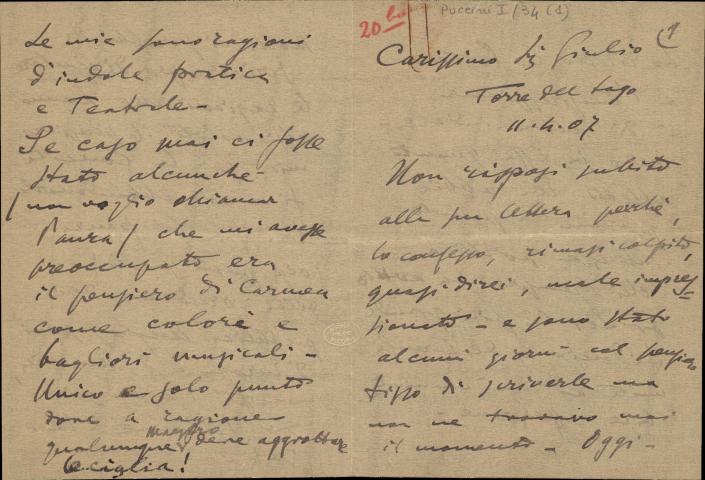 20 bis
Puccini I/34 (1)
(1
Carissimo Sig Giulio
Torre del Lago
11.4.07
Non risposi subito
alla sua lettera perchè,
lo confesso, rimasi colpito,
quasi direi, male impres-
sionato – e sono stato
alcuni giorni col pensiero
fisso di scriverle ma
non ne trovavo mai
il momento – Oggi –
Le mie sono ragioni
d'indole pratica
e Teatrale –
Se caso mai ci fosse
stato alcunchè –
/ non voglio chiamar
Paura / che mi avesse
preoccupato era
il pensiero di Carmen
come colore e
bagliori musicali –
Unico e solo punto
dove a ragione
qualunque maestro, deve aggrottare
le ciglia!